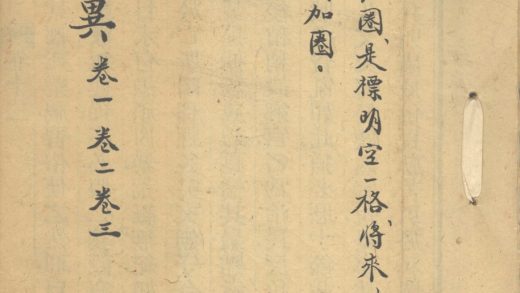 圈、是標明空一格、將來、
加圈。
異、卷一卷二卷三